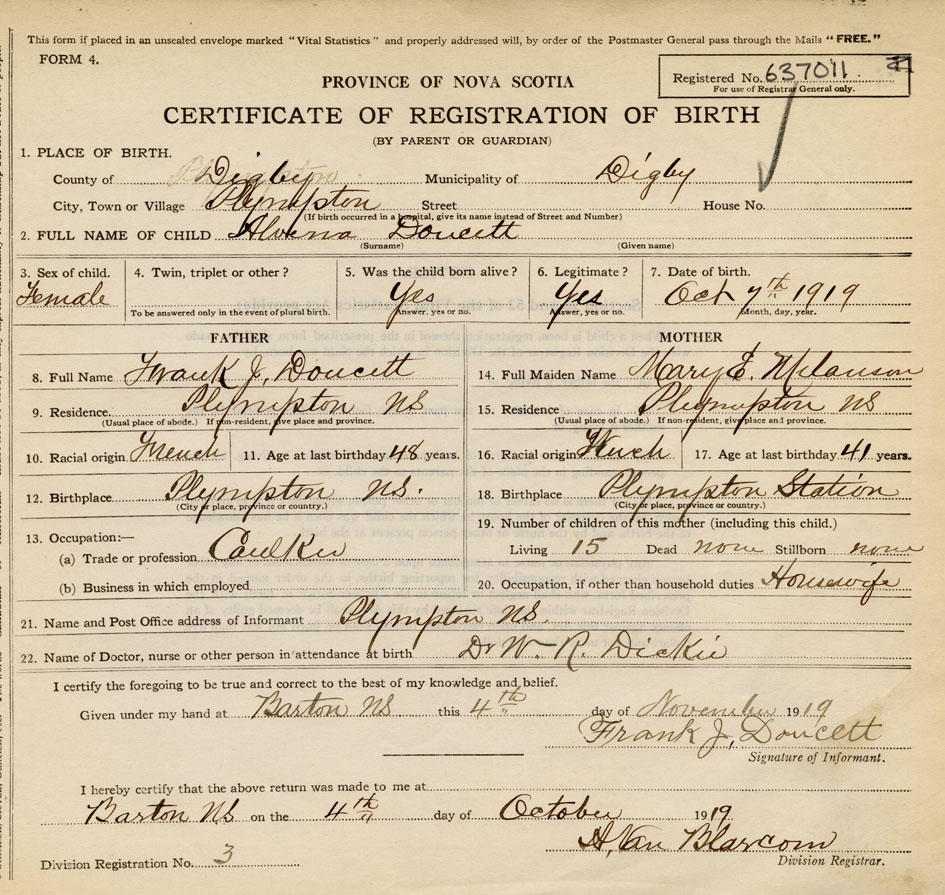 This form if placed in an unsealed envelope marked "Vital Statistics" and properly addressed will, by order of the Postmaster General pass through the Mails "FREE."
FORM 4.
Registered No. 637011
For use of Registrar General only.
PROVINCE OF NOVA SCOTIA
CERTIFICATE OF REGISTRATION OF BIRTH
(BY PARENT OR GUARDIAN)
1. PLACE OF BIRTH.
County of Digby Municipality of Digby
City, Town or Village Plympton Street House No.
(If birth occurred in a hospital, give its name instead of Street and Number)
2. FULL NAME OF CHILD Alvena Doucett
(Surname) (Given name)
3. Sex of child. 4. Twin, triplet or other? 5. Was the child born alive? 6. Legitimate? 7. Date of birth.
Female Yes Yes Oct 7th 1919
To be answered only in the event of plural birth. Answer, yes or no. Answer, yes or no. Month, day, year.
FATHER MOTHER
8. Full Name Frank J. Doucett
9. Residence. Plympton NS
(Usual place of abode.) If non-resident, give place and province.
10. Racial origin French 11. Age at last birthday 48 years.
12. Birthplace Plympton NS.
(City or place, province or country.)
13. Occupation:—
(a) Trade or profession Caulker
(b) Business in which employed
14. Full Maiden Name Mary E. Melanson
15. Residence Plympton NS
(Usual place of abode.) If non-resident, give place and province.
16. Racial origin French 17. Age at last birthday 41 years.
18. Birthplace Plympton Station
(City or place, province or country.)
19. Number of children of this mother (including this child.)
Living 15 Dead none Stillborn none
20. Occupation, if other than household duties Housewife
21. Name and Post Office address of Informant Plympton NS.
22. Name of Doctor, nurse or other person in attendance at birth Dr W. R. Dickie
I certify the foregoing to be true and correct to the best of my knowledge and belief.
Given under my hand at Barton NS this 4th day of November 1919
Frank J. Doucett
Signature of Informant.
I hereby certify that the above return was made to me at
Barton NS on the 4th day of October 1919
H. Van Blarcom
Division Registrar.
Division Registration No. 3